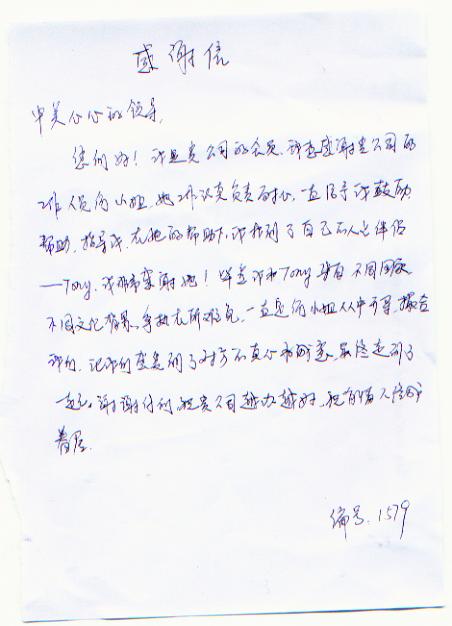 感谢信
中美心心的领导,
您们好！我是贵公司的会员，我想感谢贵公司的
工作人员向小姐，她工作认真负责耐心，一直信导我鼓励
帮助、指导我，在她的帮助下，我找到了自己的人生伴侣
——Tony，我非常感谢她！毕竟我和Tony来自不同国家
不同文化背景，争执在所难免，一直是向小姐从中开导，撮合
我们，让我们感差到了对方的真心和回家，最终走到了
一起。谢谢你们，祝贵公司越办越好，祝有情人终成
眷属。
编号：1579